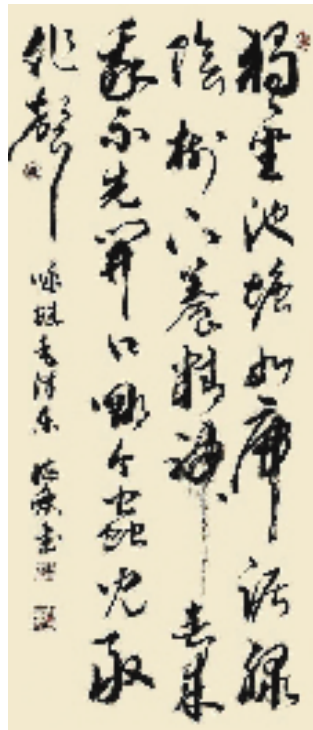 獨坐池塘如虎踞綠
陰樹下養精神春來
我不先開口哪个蟲兒敢
作聲
咏蛙毛澤東 書